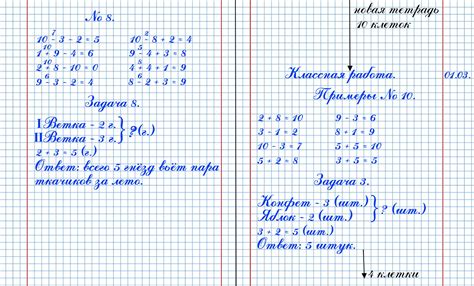 № 8.
7 2
10 - 3 - 2 = 5 10 - 8 + 2 = 4
10 5
1 + 9 - 4 = 6 9 - 4 + 3 = 8
10 8
2 + 8 - 10 = 0 4 + 4 + 1 = 9
6 6
9 - 3 - 2 = 4 8 - 2 + 3 = 9
Задача 8.
I Ветка - 2 г.
II Ветка - 3 г. } ? (г.)
2 + 3 = 5 (г.)
Ответ: всего 5 гнёзд вьёт пара
ткачиков за лето.
новая тетрадь
10 клеток
Классная работа. 01.03.
Примеры № 10.
2 + 8 = 10 9 - 3 = 6
3 - 1 = 2 8 + 1 = 9
10 - 3 = 7 5 + 5 = 10
5 + 2 = 8 3 + 5 = 5
Задача 3.
Конфет - 3 (шт.)
Яблок - 2 (шт.) } ? (шт.)
3 + 2 = 5 (шт.)
Ответ: 5 штук.
4 клетки